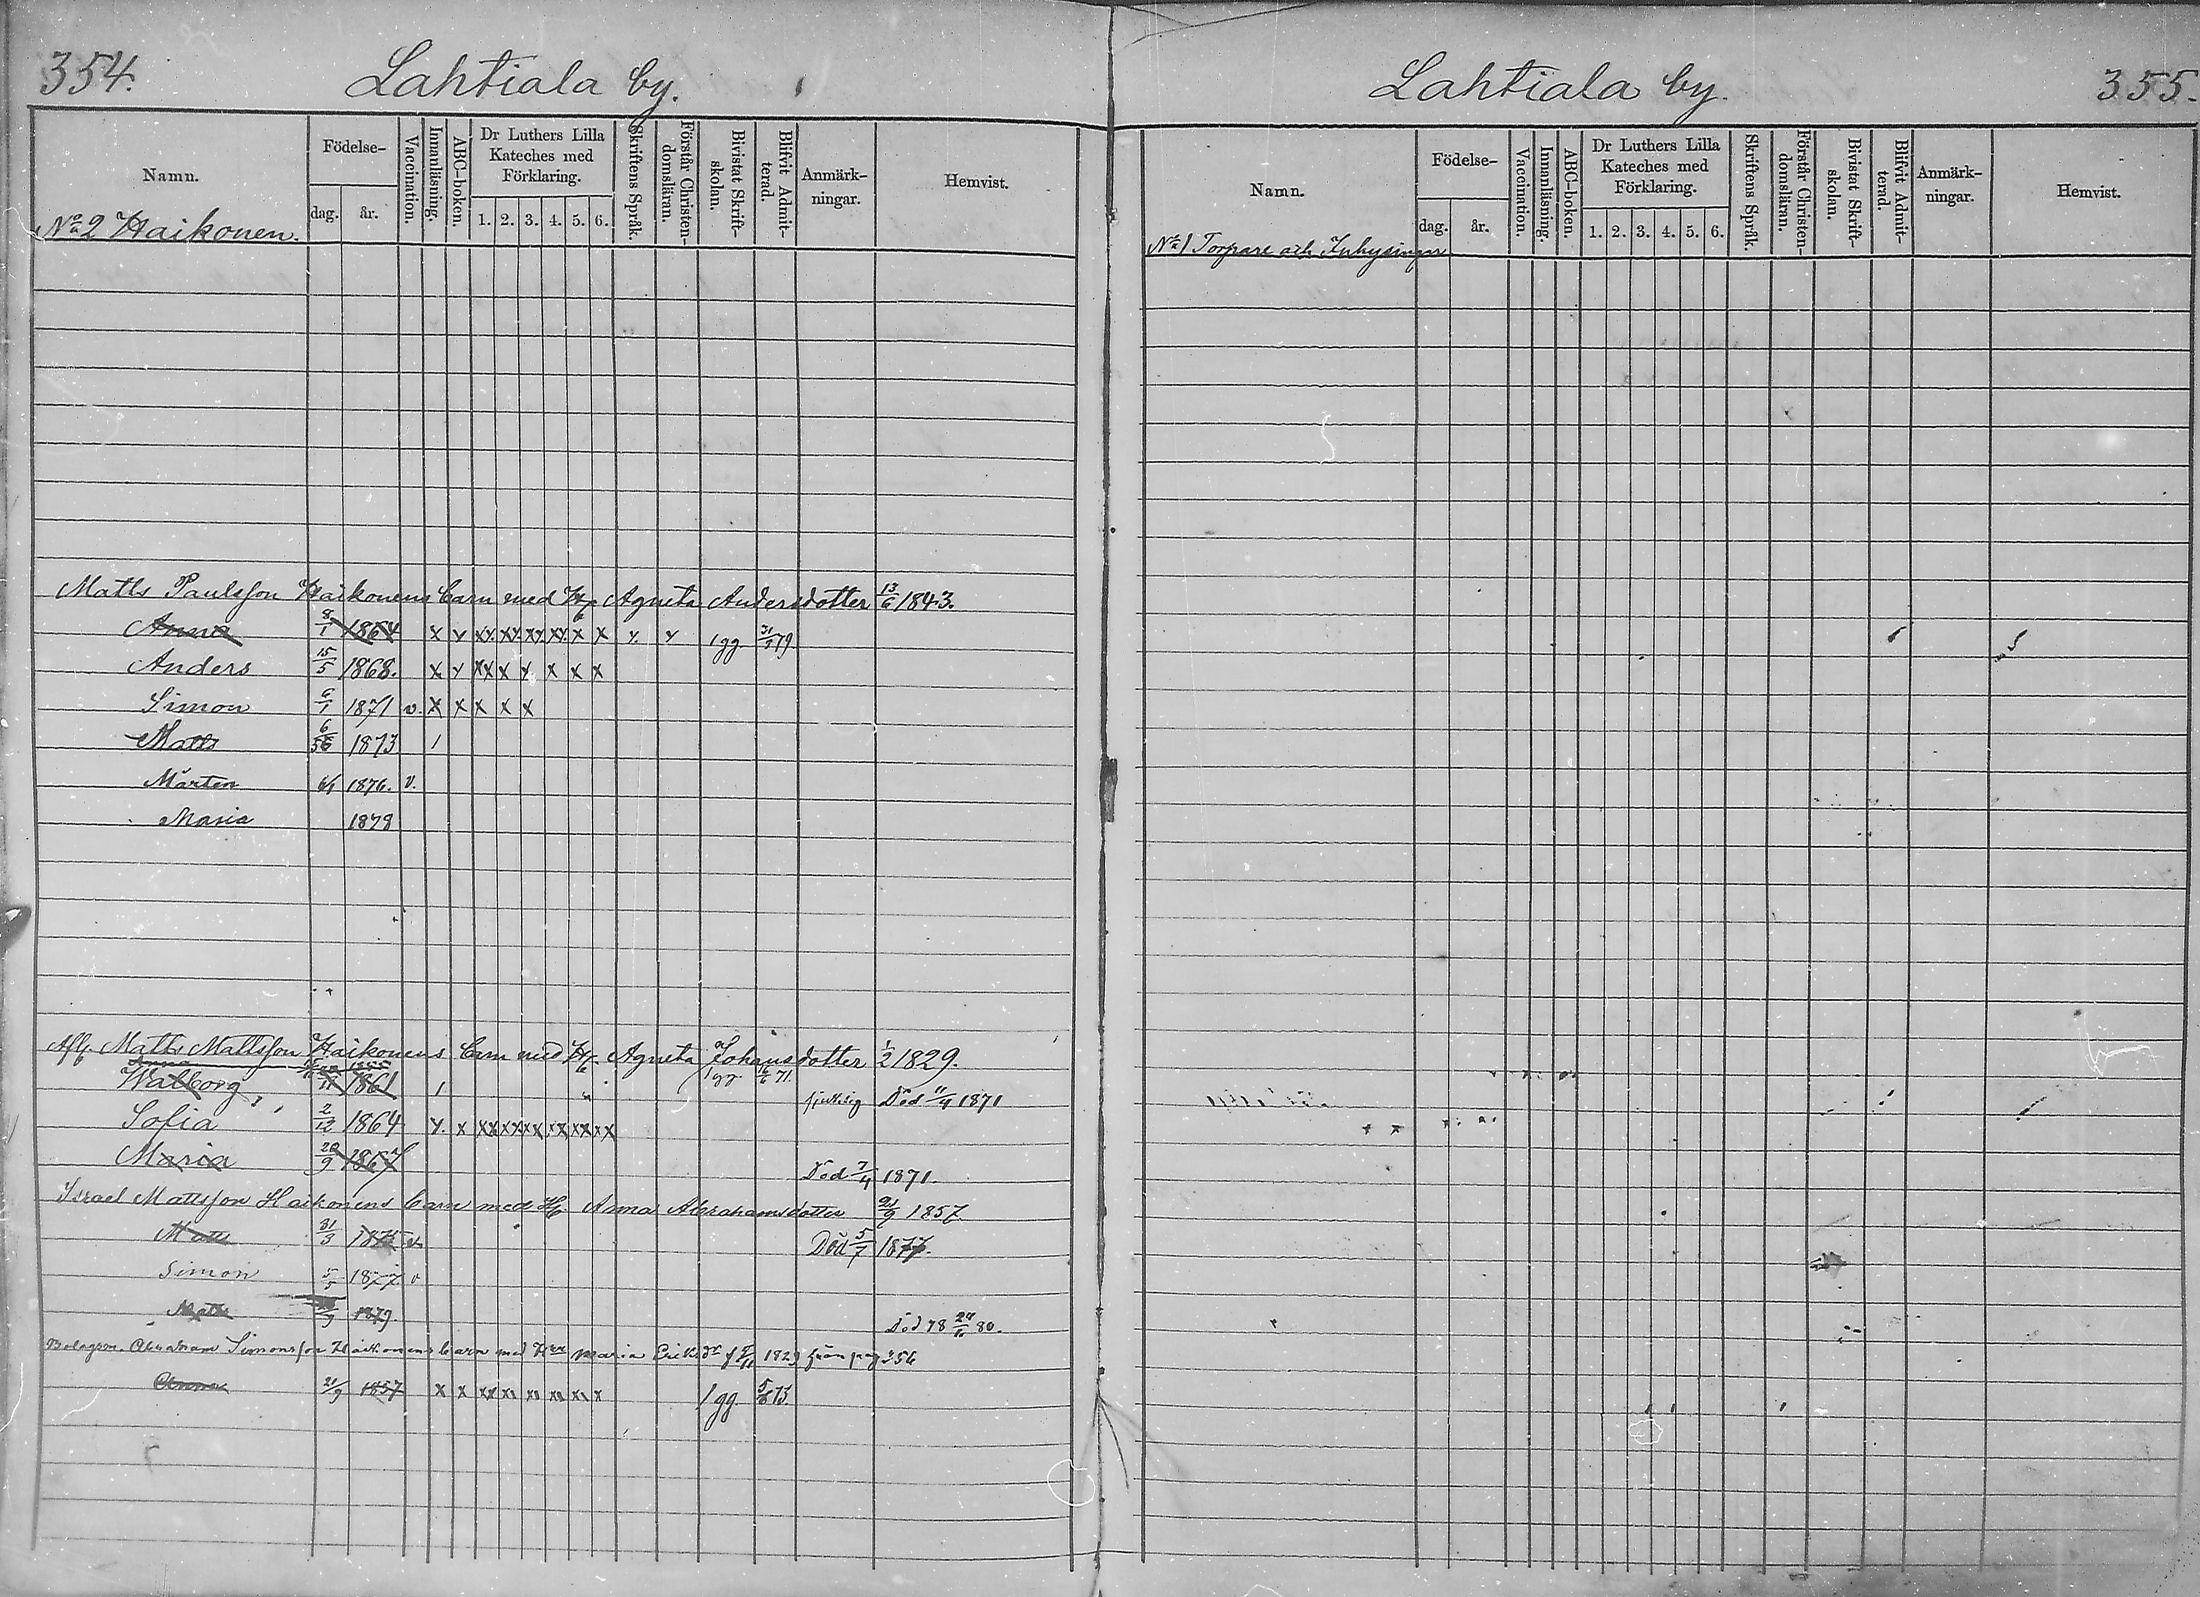 354. Lahtiala by.
Namn. Födelse- dag. år. Vaccination. Innanläsning. ABC-boken. Dr Luthers Lilla Kateches med Förklaring. 1. 2. 3. 4. 5. 6. Skriftens Språk. Förstår Christen-domsläran. Bivistat Skrift-skolan. Blifvit Admit-terad. Anmärk-ningar. Hemvist.
No 2 Haikonen.
Matts Paulsson Haikonens barn med H. Agneta Andersdotter 13/6 1843.
Anna 8/1 1864 x y xy. xy. xy. xy. x x y. y 1 gg. 79
Anders 15/5 1868. x y xx x y x x x
Simon 6/1 1871 v. x x x x x
Matts 1873 1
Mårten 1876. v.
Maria 1878
Afl. Matts Mattsson Haikonens barn med H. Agneta Johansdotter 1/2 1829.
Anna 1855 1 gg. 71.
Walborg 1861 1 sjuklig Död 11/4 1871
Sofia 2/12 1864 y. x xx xx xx xx xx xx
Maria 20/9 1867 Död 7/4 1871.
Israel Mattsson Haikonens barn med H. Anna Abrahamsdotter 1857
Matts 31/3 v. Död 5/7 1877.
Simon 5/5 1877. v
Matts 1879. Död 80.
Bolagsm. Abraham Simonsson Haikonens barn med Maria 1829 från pag 356
Anna 21/9 1857 x x xx x x 1 gg. 73.
Lahtiala by. 355.
Namn. Födelse- dag. år. Vaccination. Innanläsning. ABC-boken. Dr Luthers Lilla Kateches med Förklaring. 1. 2. 3. 4. 5. 6. Skriftens Språk. Förstår Christen-domsläran. Bivistat Skrift-skolan. Blifvit Admit-terad. Anmärk-ningar. Hemvist.
No 1 Torpare och Inhysingar